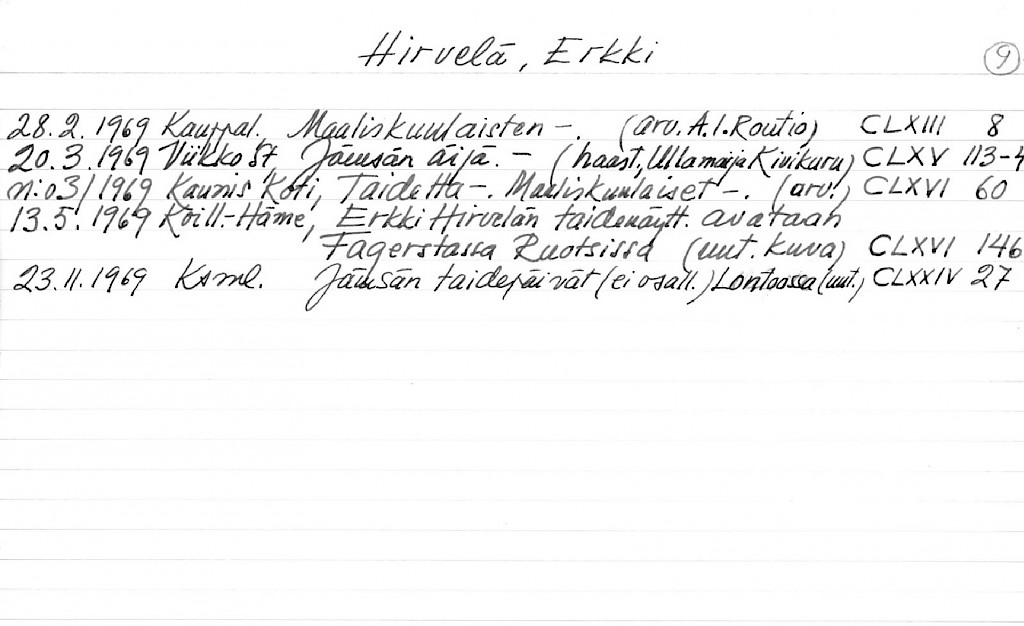 Hirvelä, Erkki
9
28.2.1969 Kauppal. Maaliskuulaisten -. (arv. A.I. Routio) CLXIII 8
20.3.1969 ViikkoSt, Jämsän äijä. - (haast, Ullamaija Kivikuru) CLXV 113-4
n:o 3/1969 Kaunis Koti, Taidetta -. Maaliskuulaiset -. (arv.) CLXVI 60
13.5.1969 Koill.-Häme, Erkki Hirvelän taidenäytt. avataan
Fagerstassa Ruotsissa (uut. kuva) CLXVI 146
23.11.1969 Ksml. Jämsän taidepäivät (ei osall.) Lontoossa (uut.) CLXXIV 27